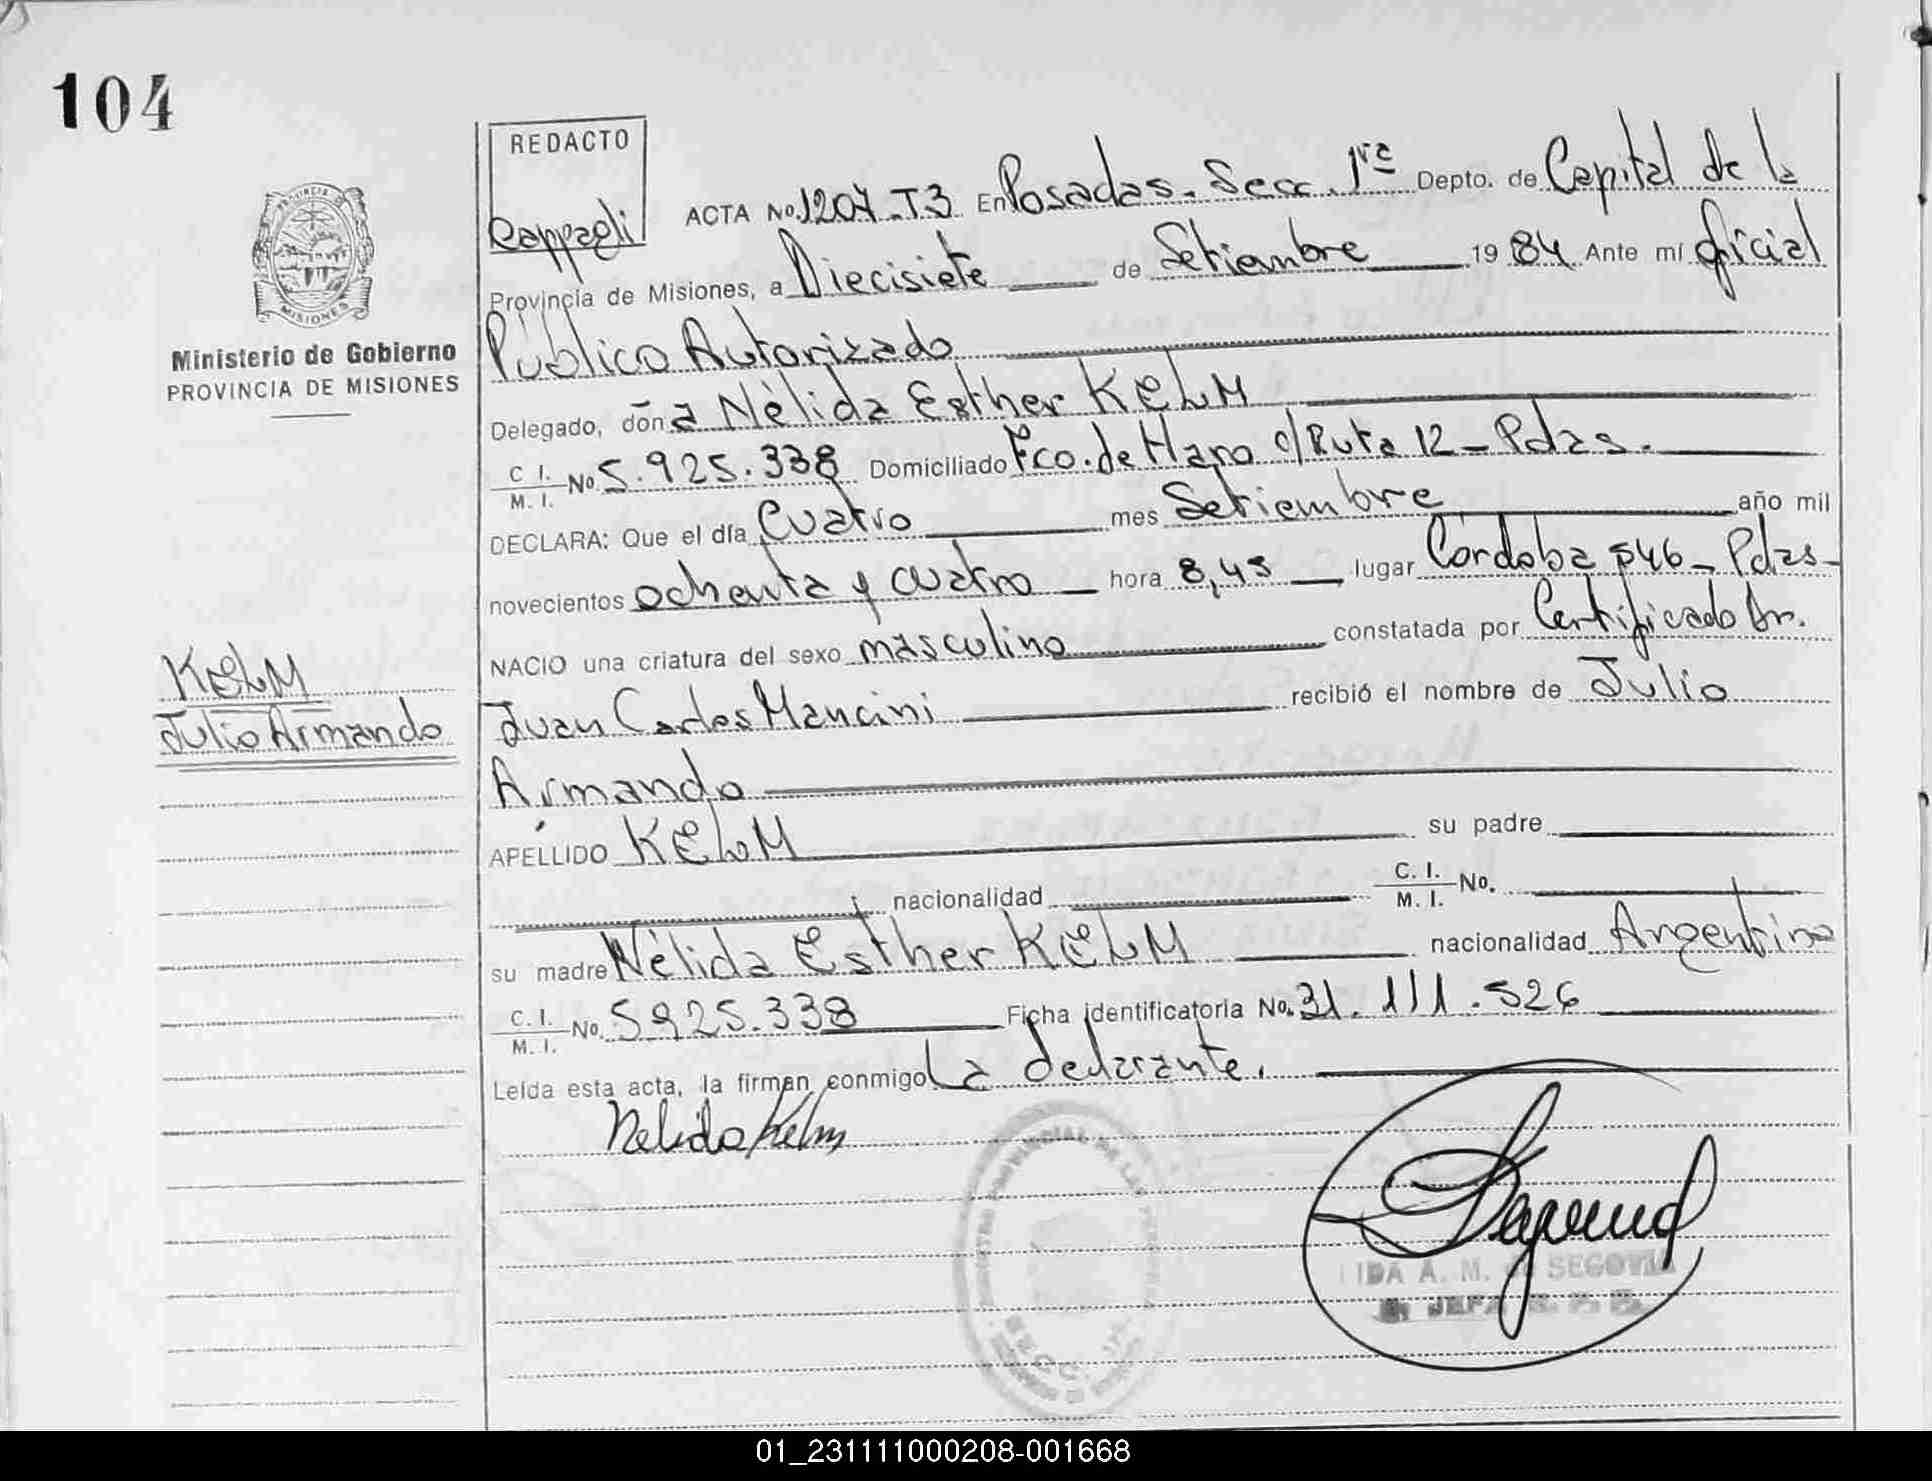 104
REDACTO
Cappagli
ACTA No. 1207-T3 En Posadas. Secc. 1ra Depto. de Capital de la
Provincia de Misiones, a Diecisiete de Setiembre 1984 Ante mí Oficial
Público Autorizado
Delegado, doña Nèlida Esther KELM
C I. M. I. No. 5.925.338 Domiciliado Fco. de Haro c/Ruta 12 - Pdas.
DECLARA: Que el día Cuatro mes Setiembre año mil
novecientos ochenta y cuatro hora 8,45 lugar Córdoba 546 - Pdas -
NACIO una criatura del sexo masculino constatada por Certificado Dr.
Juan Carlos Mancini recibió el nombre de Julio
Armando
APELLIDO KELM su padre
nacionalidad C. I. M. I. No.
su madre Nèlida Esther KELM nacionalidad Argentina
C. I. M. I. No. 5.925.338 Ficha identificatoria No. 31.111.526
Leída esta acta, la firman conmigo La declarante.
Nelida Kelm
IDA A. M. de SEGOVIA
JEFA
PROVINCIA
MISIONES
Ministerio de Gobierno
PROVINCIA DE MISIONES
KELM
Julio Armando
01_231111000208-001668